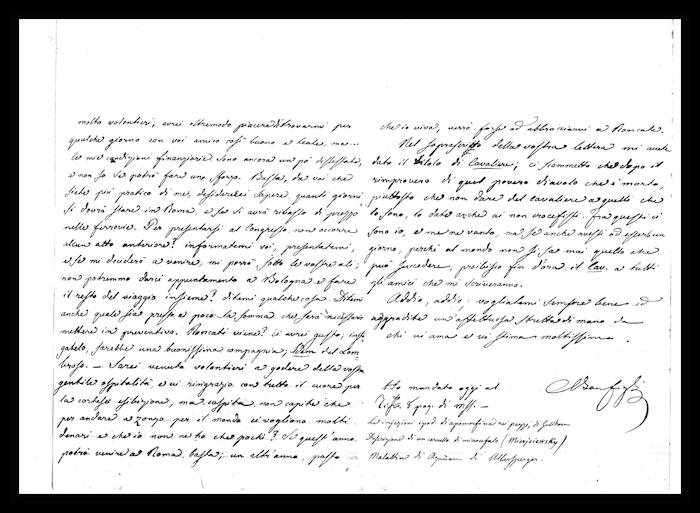 molto volontieri; avrei oltremodo piacere di trovarmi per
qualche giorno con voi amico così buono e leale, ma...
le mie condizioni finanziarie sono ancora un pò dissestate,
e non so se potrò fare uno sforzo. Basta, da voi che
siete più pratico di me, desidererei sapere, quanti giorni
si dovrà stare in Roma, e se si avrà ribasso di prezzo
nelle ferrovie. Per presentarsi al Congresso, non occorre
alcun atto anteriore? informatemi voi, presentatemi,
e se mi deciderò a venire, mi porrò sotto le vostre ali;
non potremmo darci appuntamento a Bologna e fare
il resto del viaggio insieme? ditemi qualche cosa. Ditemi
anche quale sia presso a poco la somma che sarà necessario
mettere in preventivo. Roncati viene? ci avrei gusto;
sarebbe una buonissima compagnia; Idem del Lom
broso. — Sarei venuto volontieri a godere della vostra
gentile ospitalità, e vi ringrazio con tutto il cuore per
la cortese esibizione, ma caspita, non capite che
per andare a zonzo per il mondo ci vogliono molti
denari e che io non ne ho che pochi? Se quest'anno
potrò venire a Roma, basta; un altr'anno, posto
che io viva, verrò forse ad abbracciarvi a Roncate.
Nel soprascritto della vostra lettera mi avete
dato il titolo di Cavaliere; ci scommetto che dopo il
rimprovero di quel povero diavolo che è morto,
piuttosto che non dare del cavaliere a quelli che
lo sono, lo date anche ai non crocefissi. Fra questi ci
sono io, e me ne vanto, ma se anche avessi ad esserlo un
giorno, perchè al mondo non si sa mai quello che
può succedere, proibisco fin d'ora il Cav. a tutti
gli amici che mi scriveranno.
Addio, addio; vogliatemi sempre bene ed
aggradite un'affettuosa stretta di mano da
chi vi ama e vi stima moltissimo.
CBonfigli
Ho mandato oggi al
8 pag. di mss. —
Le iniezioni ipod. di apomorfina nei pazzi, di
Descrizione di un cervello di microcefalo (Mierzejewsky)
Malattia di di